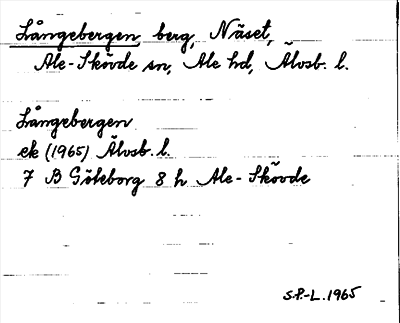 Långebergen, berg, Näset,
Ale-Skövde sn, Ale hd, Älvsb. l.
Långebergen
ek (1965) Älvsb. l.
7 B Göteborg 8 h Ale-Skövde
S.P.-L. 1965